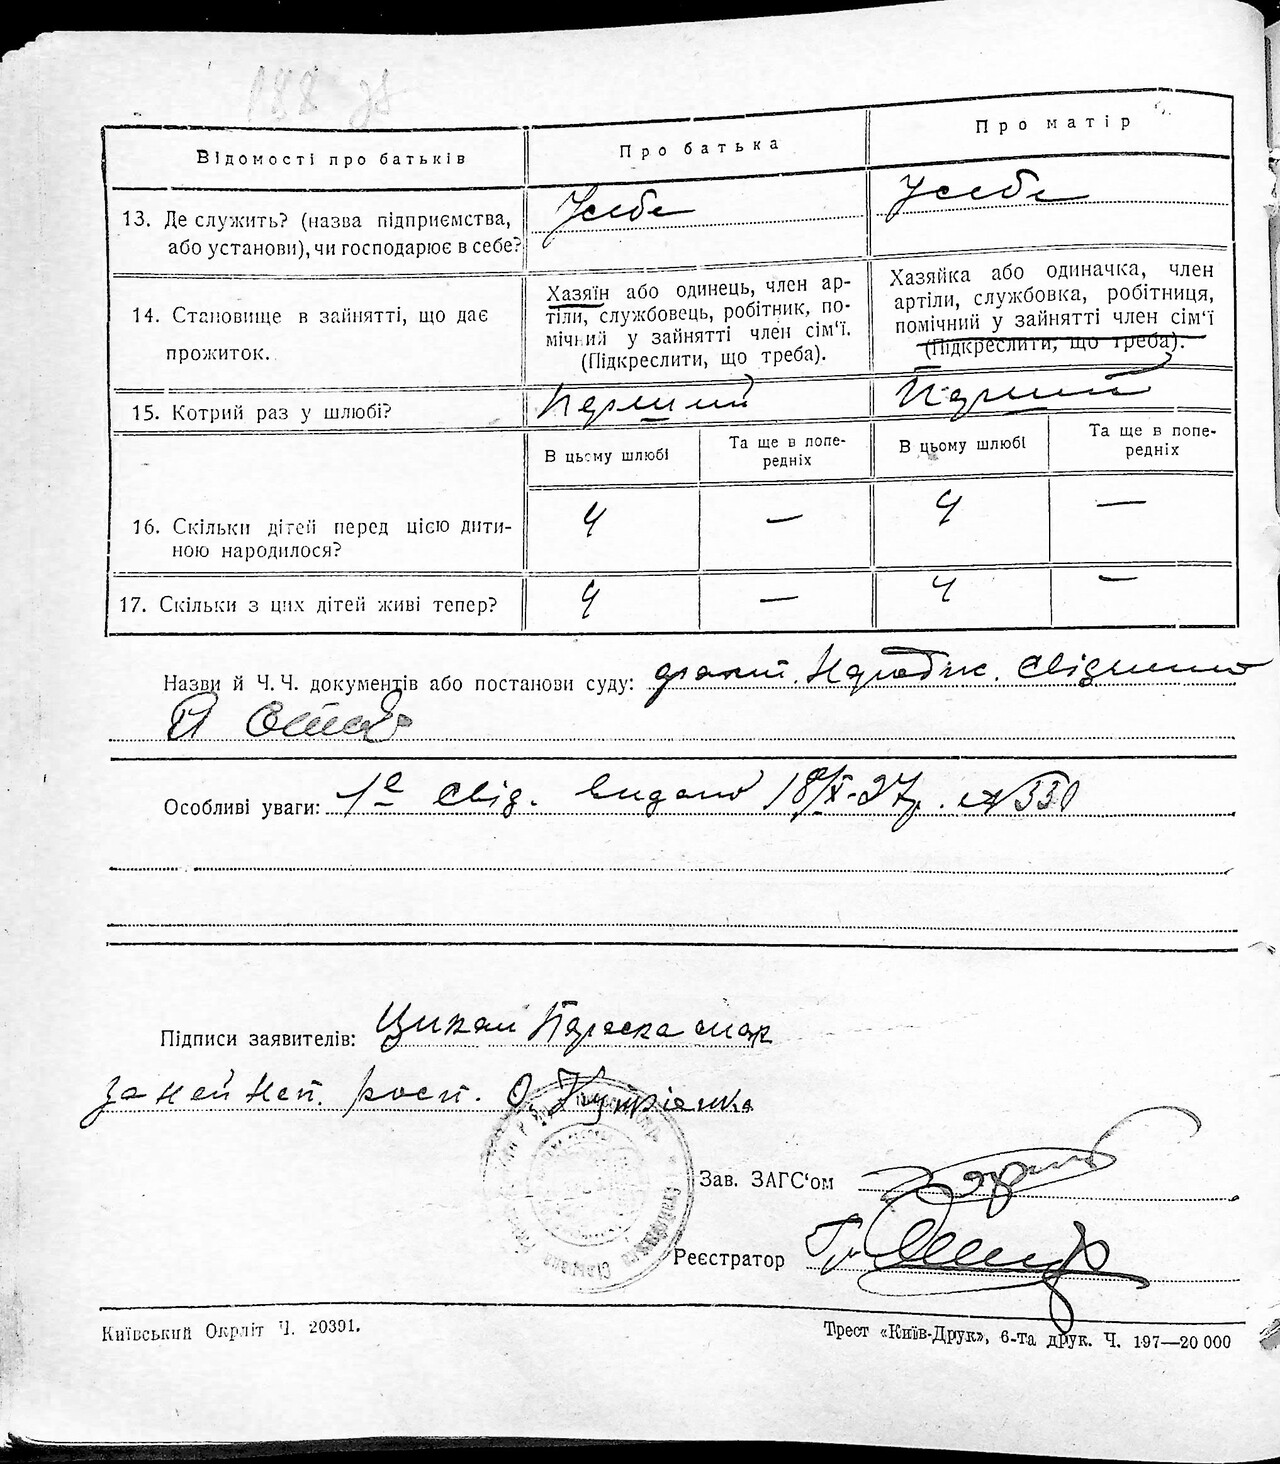 188 зв
Відомості про батьків
Про батька
Про матір
13. Де служить? (назва підприємства,
або установи), чи господарює в себе?
У себе
У себе
14. Становище в зайнятті, що дає
прожиток.
Хазяїн або одинець, член ар-
тіли, службовець, робітник, по-
мічний у зайнятті член сім'ї.
(Підкреслити, що треба).
Хазяйка або одиначка, член
артіли, службовка, робітниця,
помічний у зайнятті член сім'ї
(Підкреслити, що треба).
15. Котрий раз у шлюбі?
Перший
Перший
В цьому шлюбі
Та ще в попе-
редніх
В цьому шлюбі
Та ще в попе-
редніх
16. Скільки дітей перед цією дити-
ною народилося?
4 — 4 —
17. Скільки з цих дітей живі тепер?
4 — 4 —
Назви й Ч. Ч. документів або постанови суду:
Особливі уваги: 1е свід. видано 18/X-27р. №330
Підписи заявителів: Параска
за неї неп. росп. О.
Зав. ЗАГС'ом
Реєстратор
Київський Окрліт Ч. 20391.
Трест «Київ-Друк», 6-та друк. Ч. 197—20 000